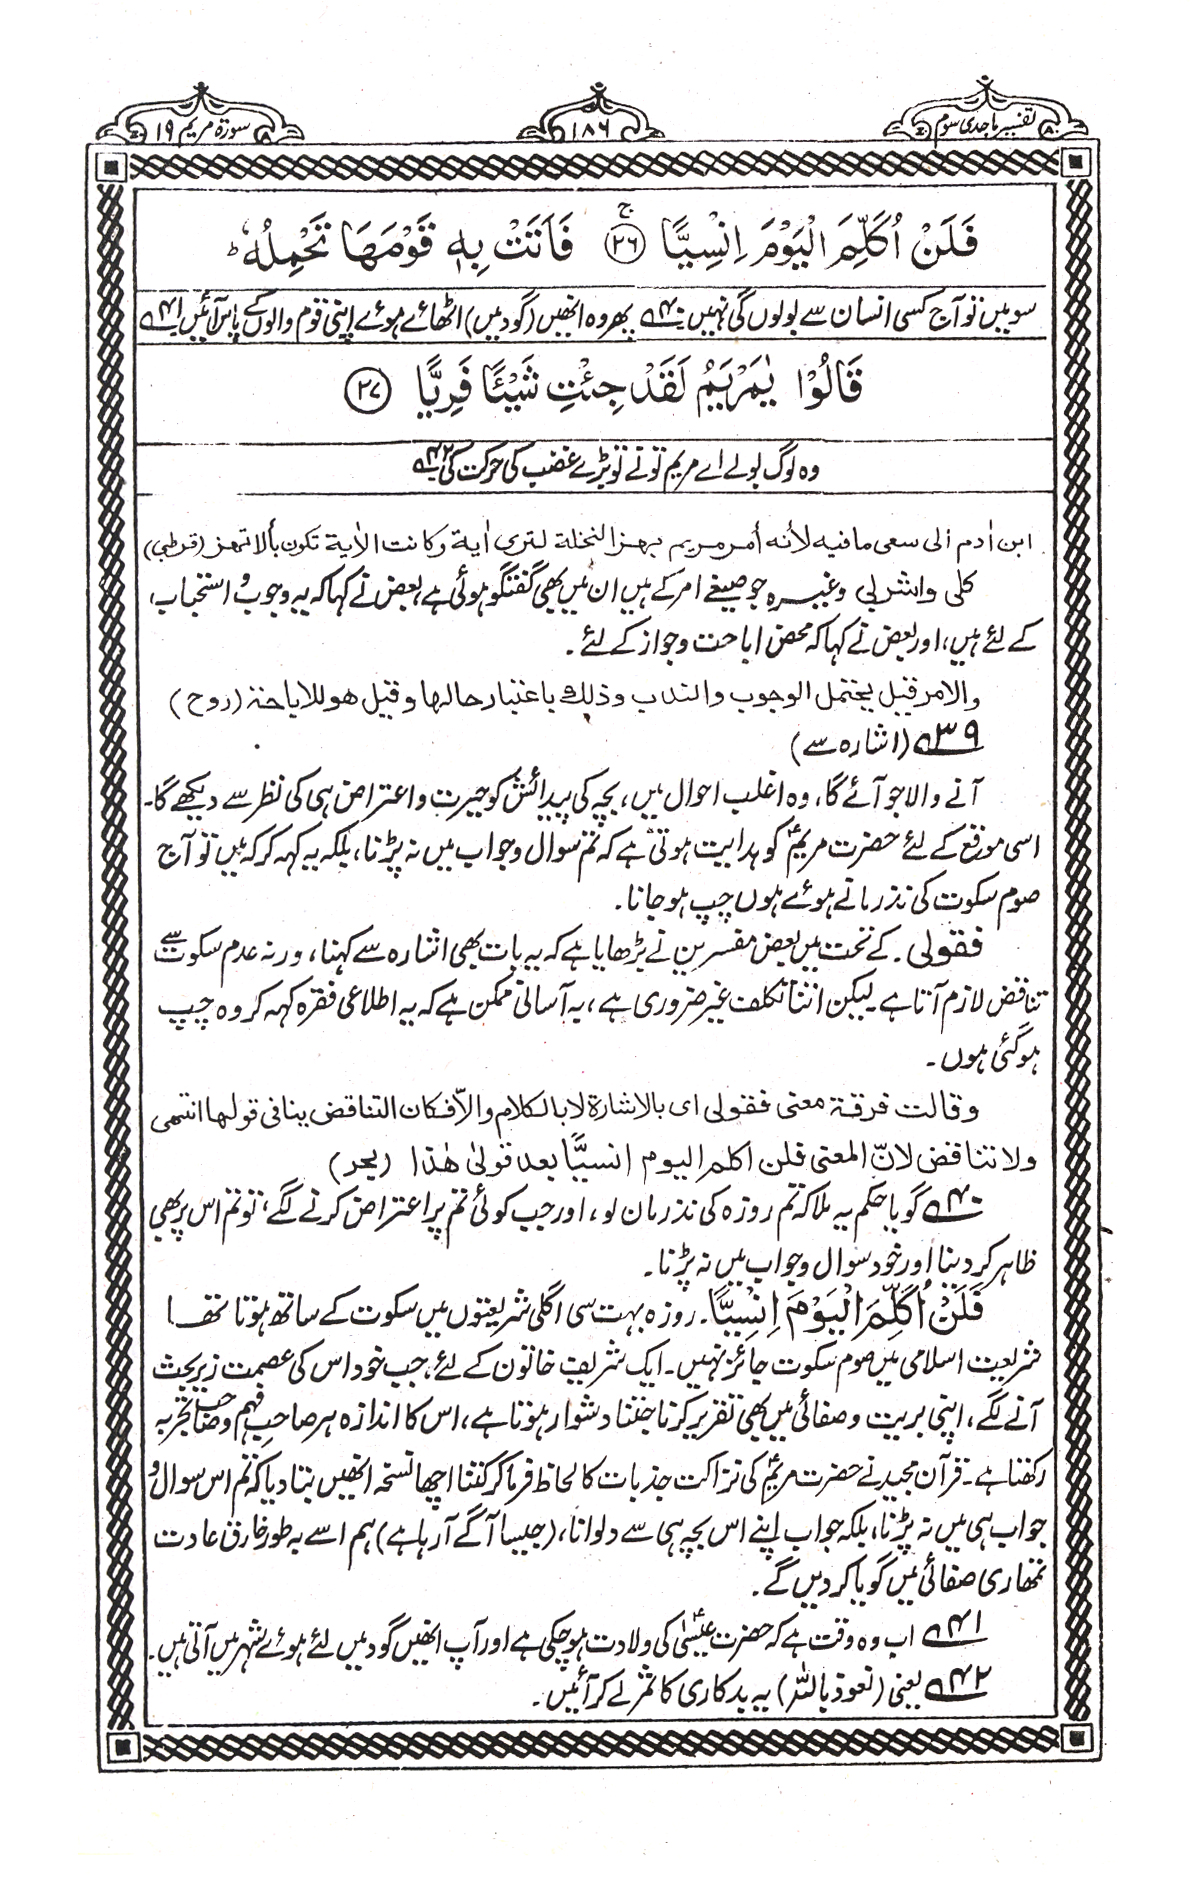 تفسیر ماجدی سوم
۱۸۶
سورۃ مریم ۱۹
فَلَنْ اُكَلِّمَ الْيَوْمَ اِنْسِيًّا ۚ ﴿۲۶﴾ فَاَتَتْ بِهٖ قَوْمَهَا تَحْمِلُهٗ ؕ
سو میں تو آج کسی انسان سے بولوں گی نہیں ۴۰؎ پھر وہ انھیں (گود میں) اٹھائے ہوئے اپنی قوم والوں کے پاس آئیں ۴۱؎
قَالُوْا يٰمَرْيَمُ لَقَدْ جِئْتِ شَيْئًا فَرِيًّا ﴿۲۷﴾
وہ لوگ بولے اے مریم تو نے تو بڑے غضب کی حرکت کی ۴۲؎
ابن اٰدم الی سعی ما فیه لأنه أمر مریم بهز النخلة لتری اٰیة وکانت الاٰیة تکون بألا تهز (قرطبی)
کلی واشربی وغیرہ جو صیغے امر کے ہیں ان میں بھی گفتگو ہوئی ہے، بعض نے کہا کہ یہ وجوب و استحباب
کے لئے ہیں، اور بعض نے کہا کہ محض اباحت و جواز کے لئے۔
والامر قیل یحتمل الوجوب والندب وذلك باعتبار حالها وقیل هو للاباحة (روح)
۳۹؎ (اشارہ سے)
آنے والا جو آئے گا، وہ اغلب احوال میں، بچہ کی پیدائش کو حیرت و اعتراض ہی کی نظر سے دیکھے گا۔
اسی موقع کے لئے حضرت مریمؑ کو ہدایت ہوتی ہے کہ تم سوال و جواب میں نہ پڑنا، بلکہ یہ کہہ کر کہ میں تو آج
صوم سکوت کی نذر مانے ہوئے ہوں چپ ہو جانا۔
فقولی۔ کے تحت میں بعض مفسرین نے بڑھایا ہے کہ یہ بات بھی اشارہ سے کہنا، ورنہ عدم سکوت سے
تناقض لازم آتا ہے۔ لیکن اتنا تکلف غیر ضروری ہے، یہ آسانی ممکن ہے کہ یہ اطلاعی فقرہ کہہ کر وہ چپ
ہو گئی ہوں۔
وقالت فرقة معنی فقولی ای بالاشارة لا بالکلام والّا فکان التناقض ینافی قولها انتهی
ولا تناقض لانّ المعنی فلن اکلم الیوم انسیًّا بعد قولی هٰذا (بحر)
۴۰؎ گویا حکم یہ ملا کہ تم روزہ کی نذر مان لو، اور جب کوئی تم پر اعتراض کرنے لگے، تو تم اس پر بھی
ظاہر کر دینا اور خود سوال و جواب میں نہ پڑنا۔
فَلَنْ اُكَلِّمَ الْيَوْمَ اِنْسِيًّا۔ روزہ بہت سی اگلی شریعتوں میں سکوت کے ساتھ ہوتا تھا۔
شریعت اسلامی میں صوم سکوت جائز نہیں۔ ایک شریف خاتون کے لئے، جب خود اس کی عصمت زیر بحث
آنے لگے، اپنی بریت و صفائی میں بھی تقریر کرنا جتنا دشوار ہوتا ہے، اس کا اندازہ ہر صاحب فہم و صاحب تجربہ
رکھتا ہے۔ قرآن مجید نے حضرت مریمؑ کی نزاکت جذبات کا لحاظ فرما کر کتنا اچھا نسخہ انھیں بتا دیا کہ تم اس سوال و
جواب ہی میں نہ پڑنا، بلکہ جواب اپنے اس بچہ ہی سے دلوانا، (جیسا آگے آ رہا ہے) ہم اسے بہ طور خارق عادت
تمھاری صفائی میں گویا کر دیں گے۔
۴۱؎ اب وہ وقت ہے کہ حضرت عیسیٰؑ کی ولادت ہو چکی ہے اور آپ انھیں گود میں لئے ہوئے شہر میں آتی ہیں۔
۴۲؎ یعنی (نعوذ باللہ) یہ بدکاری کا ثمر لے کر آئیں۔